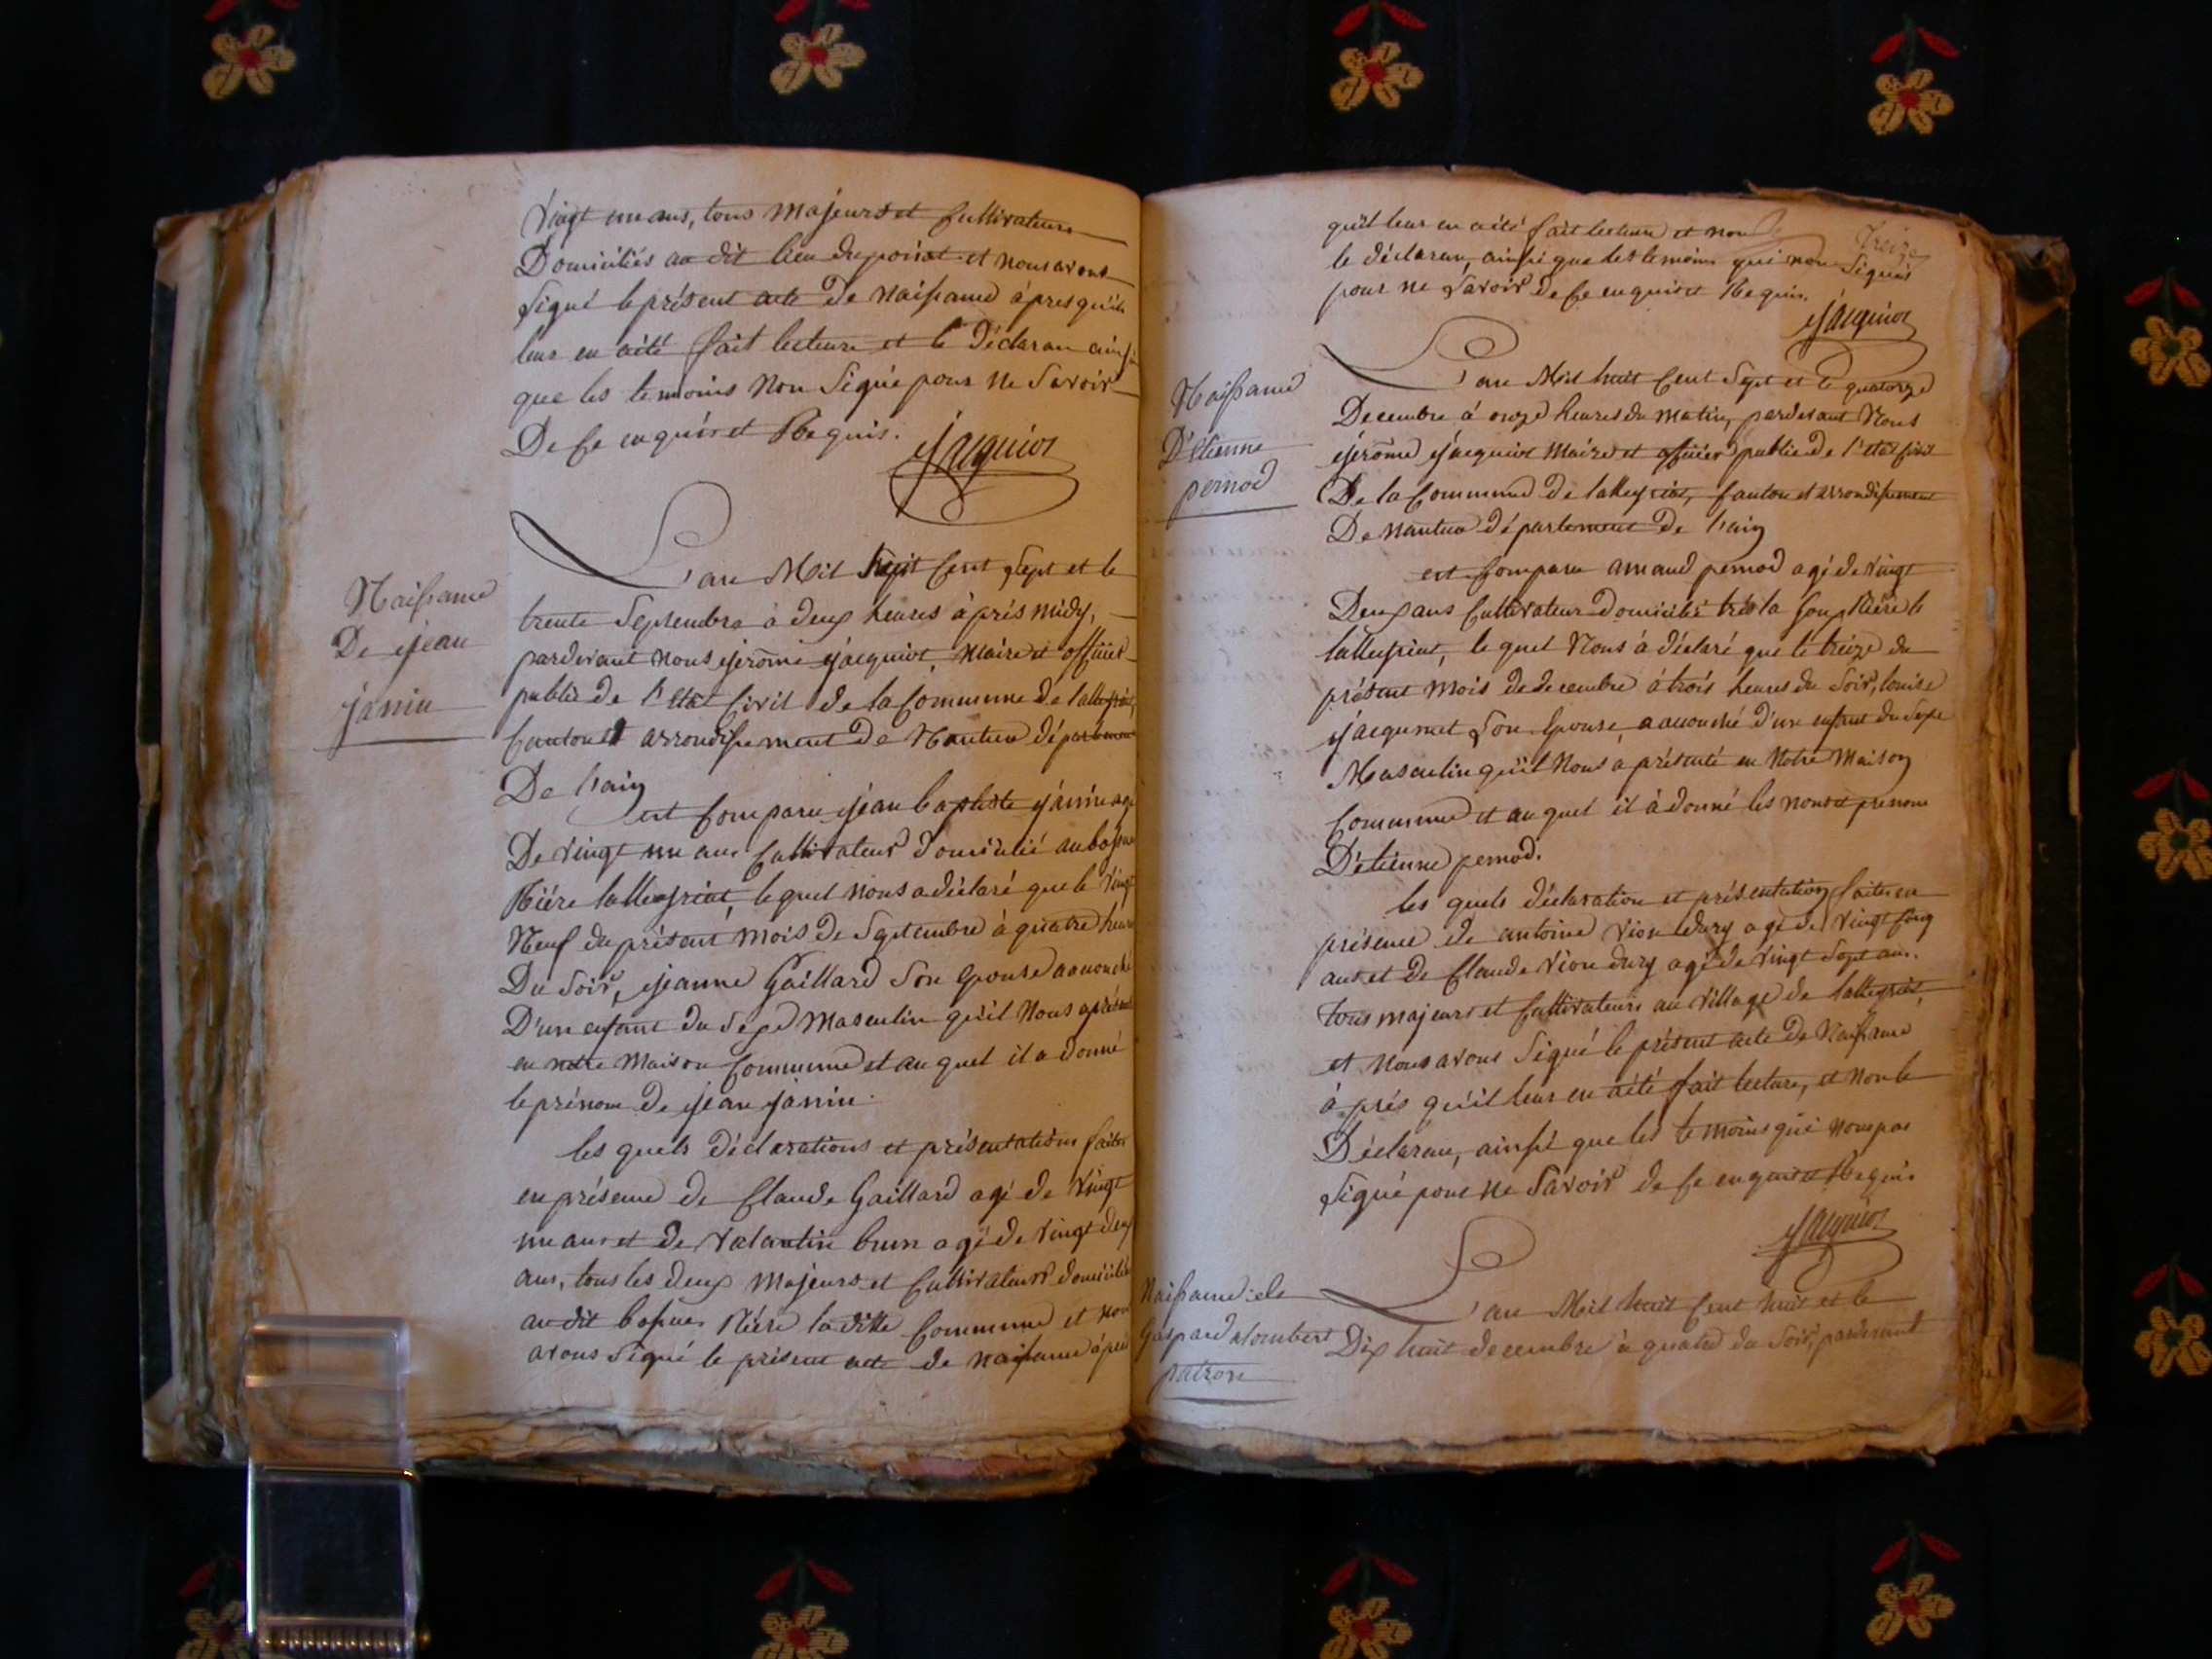 Vingt un ans, tous majeurs et Cultivateurs
Domiciliés au dit lieu du poisat et nous avons
Signé le présent acte De Naissance àpres qu'il
leur en aété fait lecture et le Déclaran ainsi
que les temoins Non Signé pour Ne Savoir
De Ce enquis et Requis.
Jacquiot
Naissance
De jean
janin
L'an Mil huit Cent Sept et le
trente Septembre à deux heures àprés midy,
pardevant nous jerôme jacquiot, Maire et officier
public de l'etat Civil de la Commune de lalleyriat,
Canton et arrondissement De Nantua département
De l'ain
est Comparu jean baptiste janin agé
De vingt un ans Cultivateur domicilié au
Riére lalleyriat, lequel nous a déclaré que le Vingt
Neuf du présent mois De Septembre à quatre heure
Du Soir, jeanne Gaillard Son Epouse a accouché
D'un enfant du Sexe Masculin qu'il Nous a présenté
en notre Maison Commune et au quel il a donné
le prénom De jean janin.
les quels Déclarations et présentations faites
en présence de Claude Gaillard agé de Vingt
un ans et de Valentin brun agé de Vingt deux
ans, tous les deux Majeurs et Cultivateurs domiciliés
au dit Riére la ditte Commune et nous
avons Signé le présent acte de naissance àprés
Treize
qu'il leur en aété fait lecture et non
le déclaran, ainsi que les temoins qui non Signés
pour ne Savoir De Ce enquis et Requis.
Jacquiot
Naissance
D'étienne
pernod
L'an Mil huit Cent Sept et le quatorze
Decembre à onze heures du Matin, pardevant Nous
jerôme jacquiot Maire et officier public de l'etat Civil
De la Commune De lalleyriat, Canton et arrondissement
De Nantua département De l'ain
est Comparu amand pernod agé de Vingt
Deux ans Cultivateur Domicilié Riére
lalleyriat, le quel Nous à déclaré que le treize du
présent Mois de decembre à trois heures du Soir, louise
jacquemet Son Epouse, a accouché d'un enfant du Sexe
Masculin qu'il Nous a présenté en Notre Maison
Commune et au quel il à donné les noms et prenom
D'étienne pernod.
les quels déclaration et présentation faites en
présence de antoine Vion dury agé de Vingt Cinq
ans et de Claude Vion dury agé de Vingt Sept ans.
tous majeurs et Cultivateurs au Village de lalleyriat,
et Nous avons Signé le présent acte De Naissance
à prés qu'il leur en aété fait lecture, et Non le
Déclaran, ainsi que les temoins qui nonpas
Signé pour Ne Savoir de Ce enquis et Requis
Jacquiot
Naissance de
Gaspard Mombert
patron
L'an Mil huit Cent huit et le
Dix huit decembre à quatre du Soir, pardevant